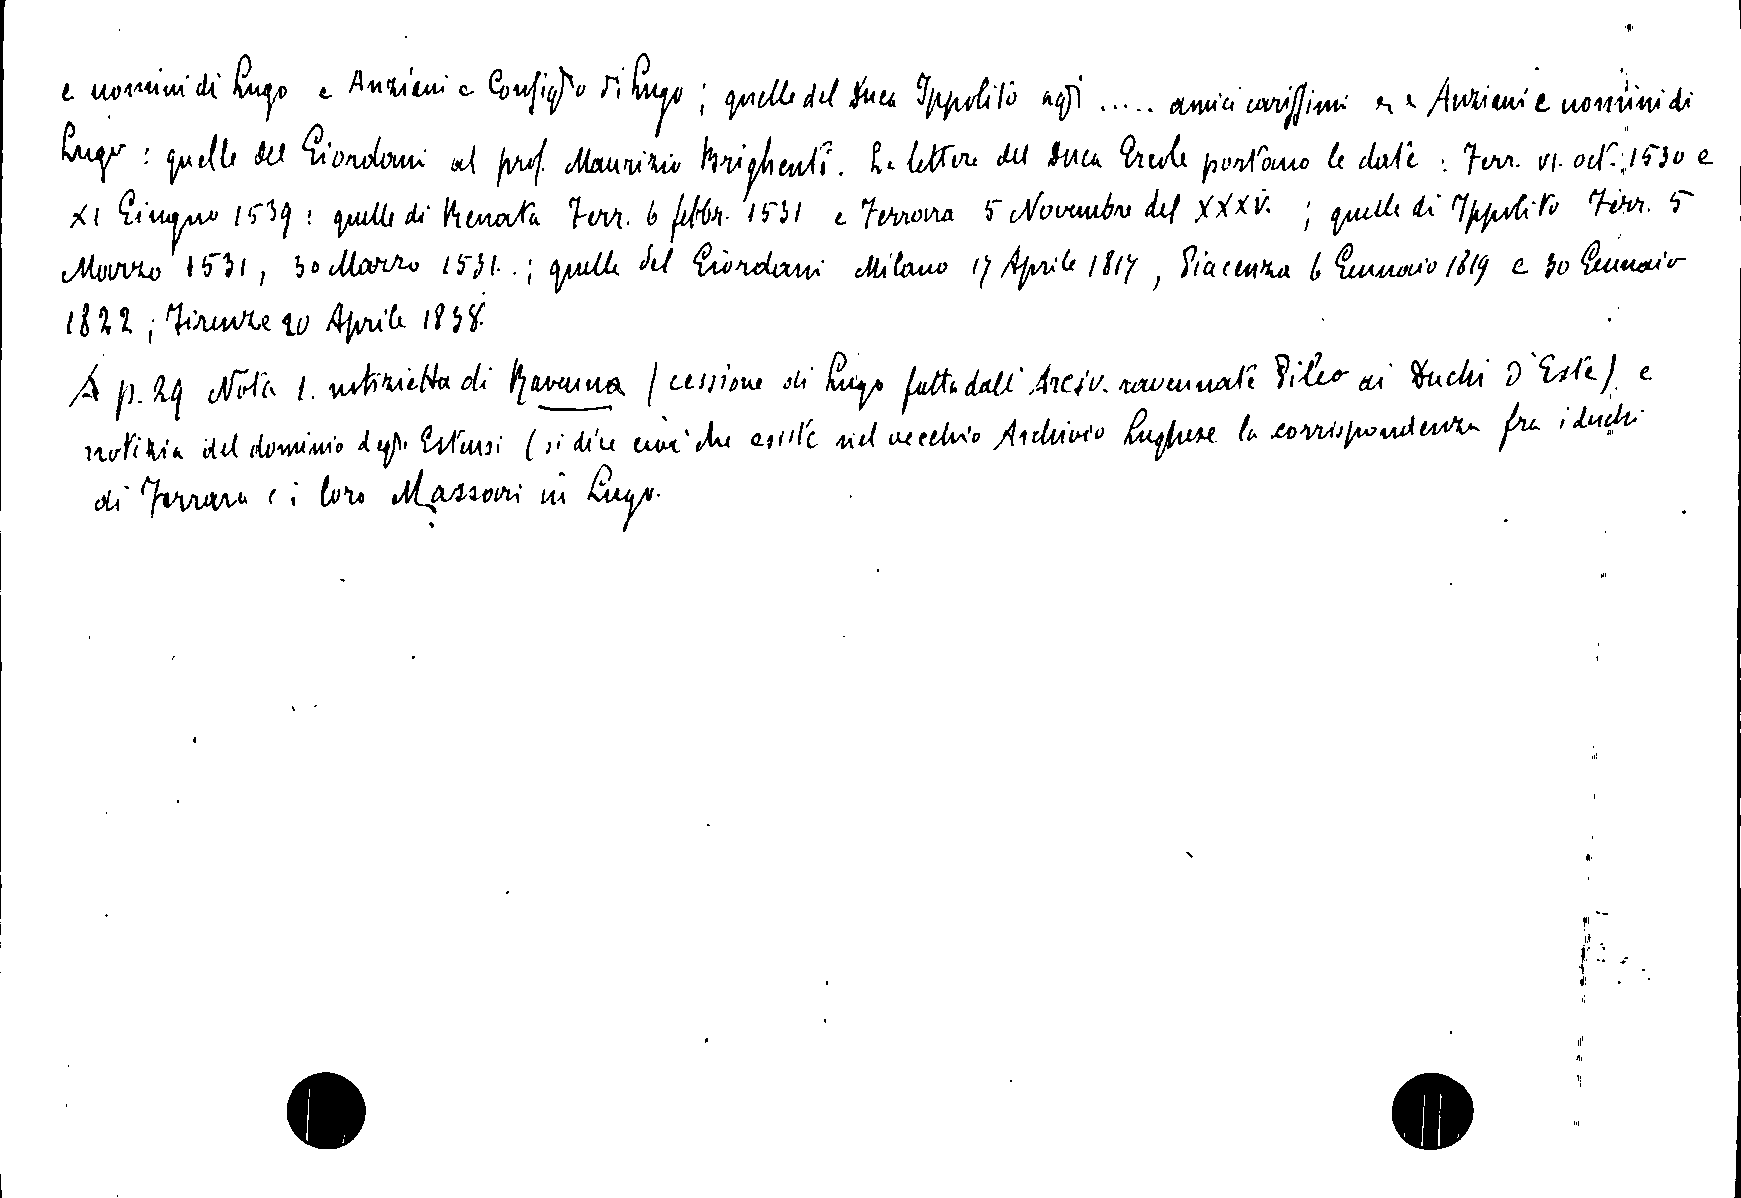 e uomini di Lugo e Anziani e Consiglio di Lugo ; quelle del Duca Ippolito agli ..... amici carissimi e Anziani e uomini di
Lugo : quelle del Giordani al prof. Maurizio Brighenti. Le lettere del Duca Ercole portano le date : Ferr. VI. oct. 1530 e
XI Giugno 1539 : quelle di Renata Ferr. 6 febbr. 1531 e Ferrara 5 Novembre del XXXV. ; quelle di Ippolito Ferr. 5
Marzo 1531, 30 Marzo 1531. ; quelle del Giordani Milano 17 Aprile 1817, Piacenza 6 Gennaio 1819 e 30 Gennaio
1822 ; Firenze 20 Aprile 1838.
A p. 29 Nota 1. notizietta di Ravenna (cessione di Lugo fatta dall' Arciv. ravennate Pileo ai Duchi d'Este) e
notizia del dominio degli Estensi (si dice che esiste nel vecchio Archivio Lughese la corrispondenza fra i duchi
di Ferrara e i loro Massari in Lugo.